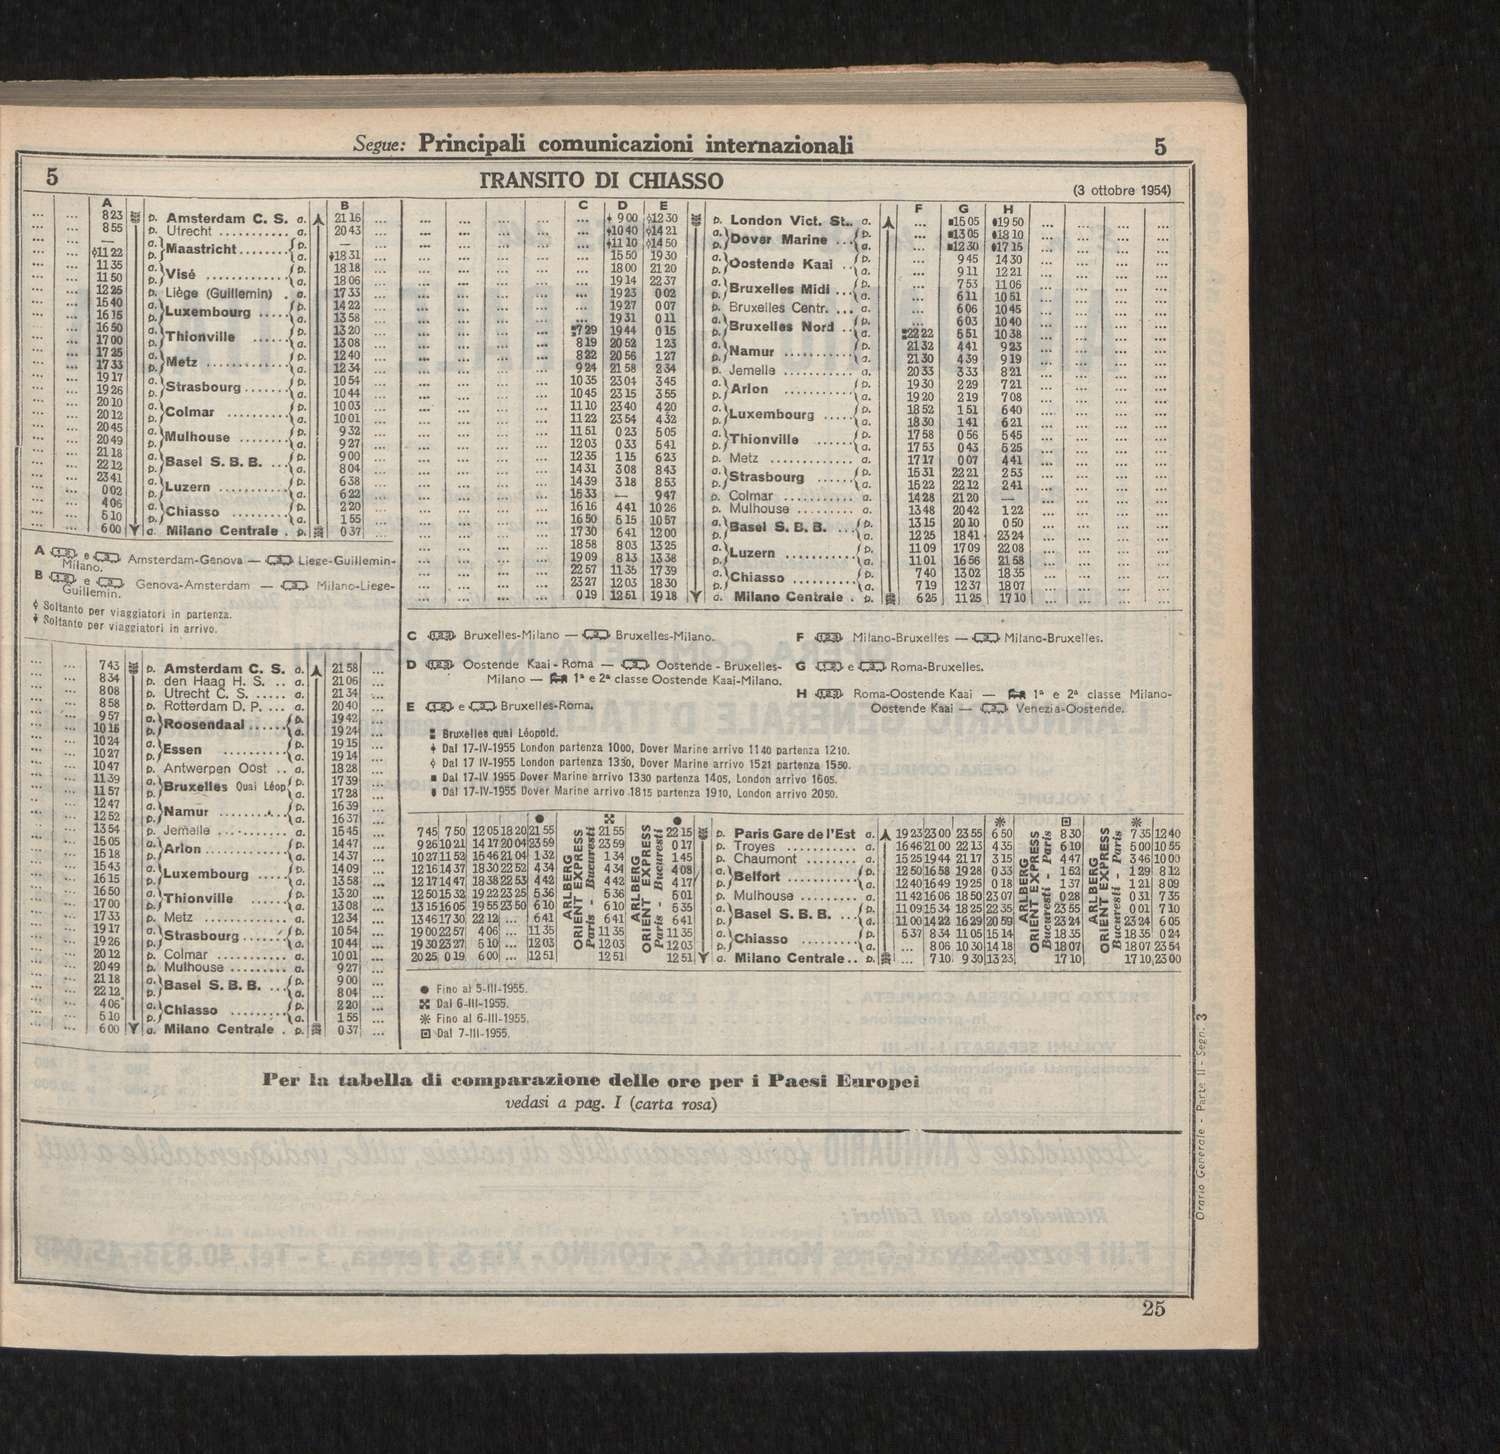 Segue: Principali comunicazioni internazionali 5
5 TRANSITO DI CHIASSO (3 ottobre 1954)
A B
823 p. Amsterdam C. S. a. 21 16
855 p. Utrecht a. 20 43
— a. Maastricht p. —
11 22 p. a. 18 31
11 35 a. Visé p. 18 18
11 50 p. a. 18 06
12 25 p. Liège (Guillemin) a. 17 33
15 40 a. Luxembourg p. 14 22
16 15 p. a. 13 58
16 50 a. Thionville p. 13 20
17 00 p. a. 13 08
17 25 a. Metz p. 12 40
17 33 p. a. 12 34
19 17 a. Strasbourg p. 10 54
19 26 p. a. 10 44
20 10 a. Colmar p. 10 03
20 12 p. a. 10 01
20 45 a. Mulhouse p. 9 32
20 49 p. a. 9 27
21 18 a. Basel S. B. B. p. 9 00
22 12 p. a. 8 04
23 41 a. Luzern p. 6 38
0 02 p. a. 6 22
4 06 a. Chiasso p. 2 20
5 10 p. a. 1 55
6 00 a. Milano Centrale p. 0 37
A e Amsterdam-Genova — Liege-Guillemin-
Milano.
B e Genova-Amsterdam — Milano-Liege-
Guillemin.
Soltanto per viaggiatori in partenza.
Soltanto per viaggiatori in arrivo.
7 43 p. Amsterdam C. S. a. 21 58
8 34 p. den Haag H. S. a. 21 06
8 08 p. Utrecht C. S. a. 21 34
8 58 p. Rotterdam D. P. a. 20 40
9 57 a. Roosendaal p. 19 42
10 16 p. a. 19 24
10 24 a. Essen p. 19 15
10 27 p. a. 19 14
10 47 p. Antwerpen Oost a. 18 28
11 39 a. Bruxelles Quai Léop. p. 17 39
11 57 p. a. 17 28
12 47 a. Namur p. 16 39
12 52 p. a. 16 37
13 54 p. Jemelle a. 15 45
15 05 a. Arlon p. 14 47
15 18 p. a. 14 37
15 43 a. Luxembourg p. 14 09
16 15 p. a. 13 58
16 50 a. Thionville p. 13 20
17 00 p. a. 13 08
17 33 p. Metz a. 12 34
19 17 a. Strasbourg p. 10 54
19 26 p. a. 10 44
20 12 p. Colmar a. 10 01
20 49 p. Mulhouse a. 9 27
21 18 a. Basel S. B. B. p. 9 00
22 12 p. a. 8 04
4 06 a. Chiasso p. 2 20
5 10 p. a. 1 55
6 00 a. Milano Centrale p. 0 37
C D E F G H
... 9 00 12 30 p. London Vict. St. a. ... 15 05 19 50
... 10 40 14 21 a. Dover Marine p. ... 13 05 18 10
... 11 10 14 50 p. a. ... 12 30 17 15
... 15 50 19 30 a. Oostende Kaai p. ... 9 45 14 30
... 18 00 21 20 p. a. ... 9 11 12 21
... 19 14 22 37 a. Bruxelles Midi p. ... 7 53 11 06
... 19 23 0 02 p. a. ... 6 11 10 51
... 19 27 0 07 p. Bruxelles Centr. a. ... 6 06 10 45
... 19 31 0 11 a. Bruxelles Nord p. ... 6 03 10 40
7 29 19 44 0 15 p. a. 22 22 5 51 10 38
8 19 20 52 1 23 a. Namur p. 21 32 4 41 9 23
8 22 20 56 1 27 p. a. 21 30 4 39 9 19
9 24 21 58 2 34 p. Jemelle a. 20 33 3 33 8 21
10 35 23 04 3 45 a. Arlon p. 19 30 2 29 7 21
10 45 23 15 3 55 p. a. 19 20 2 19 7 08
11 10 23 40 4 20 a. Luxembourg p. 18 52 1 51 6 40
11 22 23 54 4 32 p. a. 18 30 1 41 6 21
11 51 0 23 5 05 a. Thionville p. 17 58 0 56 5 45
12 03 0 33 5 41 p. a. 17 53 0 43 5 25
12 35 1 15 6 23 p. Metz a. 17 17 0 07 4 41
14 31 3 08 8 43 a. Strasbourg p. 15 31 22 21 2 53
14 39 3 18 8 53 p. a. 15 22 22 12 2 41
15 33 — 9 47 p. Colmar a. 14 28 21 20 —
16 16 4 41 10 26 p. Mulhouse a. 13 48 20 42 1 22
16 50 5 15 10 57 a. Basel S. B. B. p. 13 15 20 10 0 50
17 30 6 41 12 00 p. a. 12 25 18 41 23 24
18 58 8 03 13 25 a. Luzern p. 11 09 17 09 22 08
19 09 8 13 13 38 p. a. 11 01 16 56 21 58
22 57 11 35 17 39 a. Chiasso p. 7 40 13 02 18 35
23 27 12 03 18 30 p. a. 7 19 12 37 18 07
0 19 12 51 19 18 a. Milano Centrale p. 6 25 11 25 17 10
C Bruxelles-Milano — Bruxelles-Milano.
D Oostende Kaai - Roma — Oostende - Bruxelles-
Milano — 1ª e 2ª classe Oostende Kaai-Milano.
E e Bruxelles-Roma.
F Milano-Bruxelles — Milano-Bruxelles.
G e Roma-Bruxelles.
H Roma-Oostende Kaai — 1ª e 2ª classe Milano-
Oostende Kaai — Venezia-Oostende.
Bruxelles quai Léopold.
Dal 17-IV-1955 London partenza 1000, Dover Marine arrivo 1140 partenza 1210.
Dal 17 IV-1955 London partenza 1330, Dover Marine arrivo 1521 partenza 1550.
Dal 17-IV 1955 Dover Marine arrivo 1330 partenza 1405, London arrivo 1605.
Dal 17-IV-1955 Dover Marine arrivo 1815 partenza 1910, London arrivo 2050.
7 45 7 50 12 05 18 20 21 55 21 55 22 15 p. Paris Gare de l'Est a. 19 23 23 00 23 55 6 50 8 30 7 35 12 40
9 26 10 21 14 17 20 04 23 59 23 59 0 17 p. Troyes a. 16 46 21 00 22 13 4 35 6 10 5 00 10 55
10 27 11 52 15 46 21 04 1 32 1 34 1 45 p. Chaumont a. 15 25 19 44 21 17 3 15 4 47 3 46 10 00
12 16 14 37 18 30 22 52 4 34 4 34 4 08 a. Belfort p. 12 50 16 58 19 28 0 33 1 52 1 29 8 12
12 17 14 47 18 38 22 53 4 42 4 42 4 17 p. a. 12 40 16 49 19 25 0 18 1 37 1 21 8 09
12 50 15 32 19 22 23 25 5 36 5 36 5 01 p. Mulhouse a. 11 42 16 06 18 50 23 07 0 28 0 31 7 35
13 15 16 05 19 55 23 50 6 10 6 10 5 35 a. Basel S. B. B. p. 11 09 15 34 18 25 22 35 23 55 0 01 7 10
13 46 17 30 22 12 ... 6 41 6 41 6 41 p. a. 11 00 14 22 16 29 20 59 23 24 23 24 6 05
19 00 22 57 4 06 ... 11 35 11 35 11 35 a. Chiasso p. 5 37 8 34 11 05 15 14 18 35 18 35 0 24
19 30 23 27 5 10 ... 12 03 12 03 12 03 p. a. ... 8 06 10 30 14 18 18 07 18 07 23 54
20 25 0 19 6 00 ... 12 51 12 51 12 51 a. Milano Centrale p. ... 7 10 9 30 13 23 17 10 17 10 23 00
ARLBERG ORIENT EXPRESS Paris - Bucuresti
ARLBERG ORIENT EXPRESS Paris - Bucuresti
ARLBERG ORIENT EXPRESS Bucuresti - Paris
ARLBERG ORIENT EXPRESS Bucuresti - Paris
Fino al 5-III-1955.
Dal 6-III-1955.
Fino al 6-III-1955.
Dal 7-III-1955.
Per la tabella di comparazione delle ore per i Paesi Europei
vedasi a pag. I (carta rosa)
Orario Generale - Parte II - Segn. 3
25